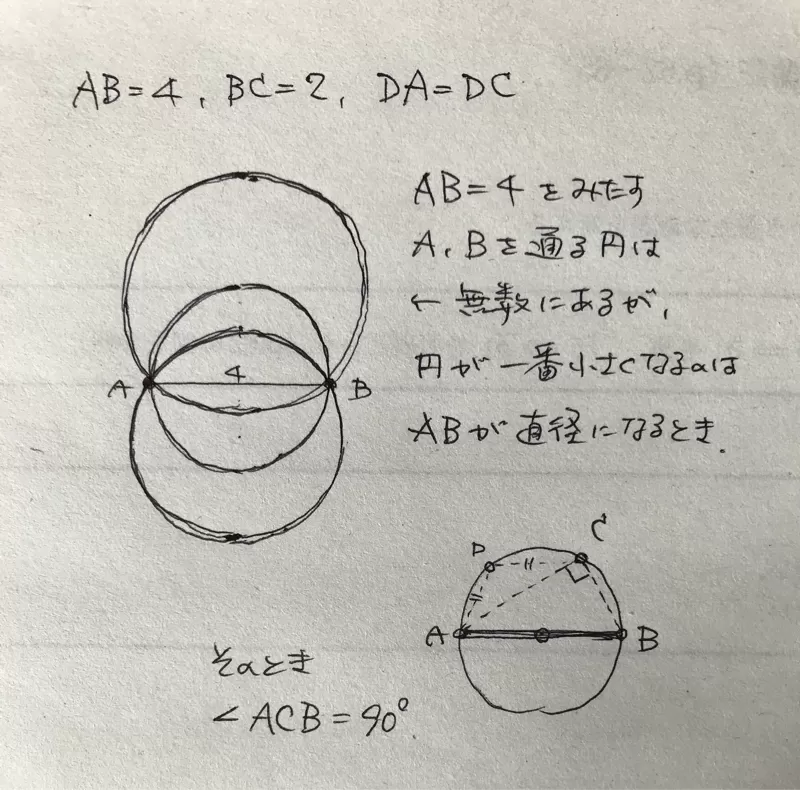 AB=4, BC=2, DA=DC
AB=4をみたす
A, Bを通る円は
← 無数にあるが,
円が一番小さくなるのは
ABが直径になるとき.
A
4
B
C
D
A
B
そのとき
∠ACB=90°